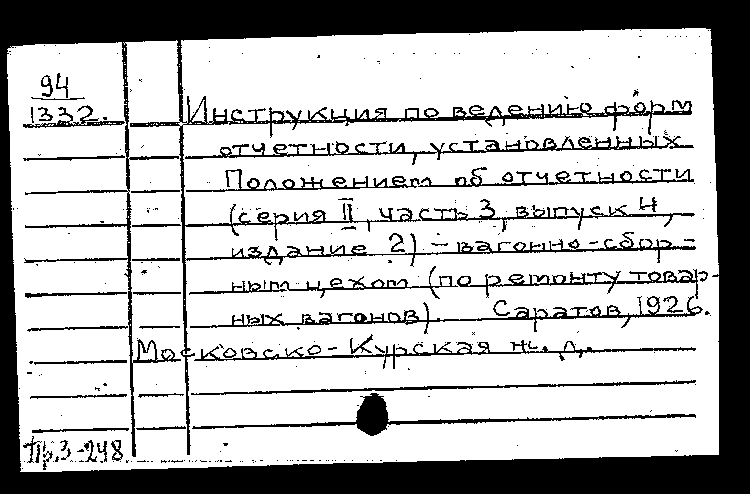 94
1332.
Инструкция по ведению форм
отчетности, установленных
Положением об отчетности
(серия II, часть 3, выпуск 4,
издание 2) – вагонно-сбор-
ным цехом (по ремонту товар-
ных вагонов). Саратов, 1926.
Московско-Курская ж. д.
Пр.3-248